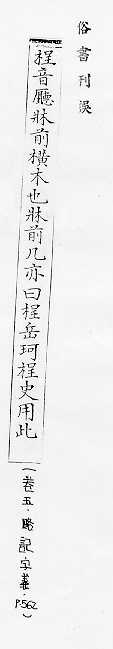 俗書刊誤
桯音廳牀前橫木也牀前几亦曰桯岳珂桯史用此
(卷五·略記字義·P.562)